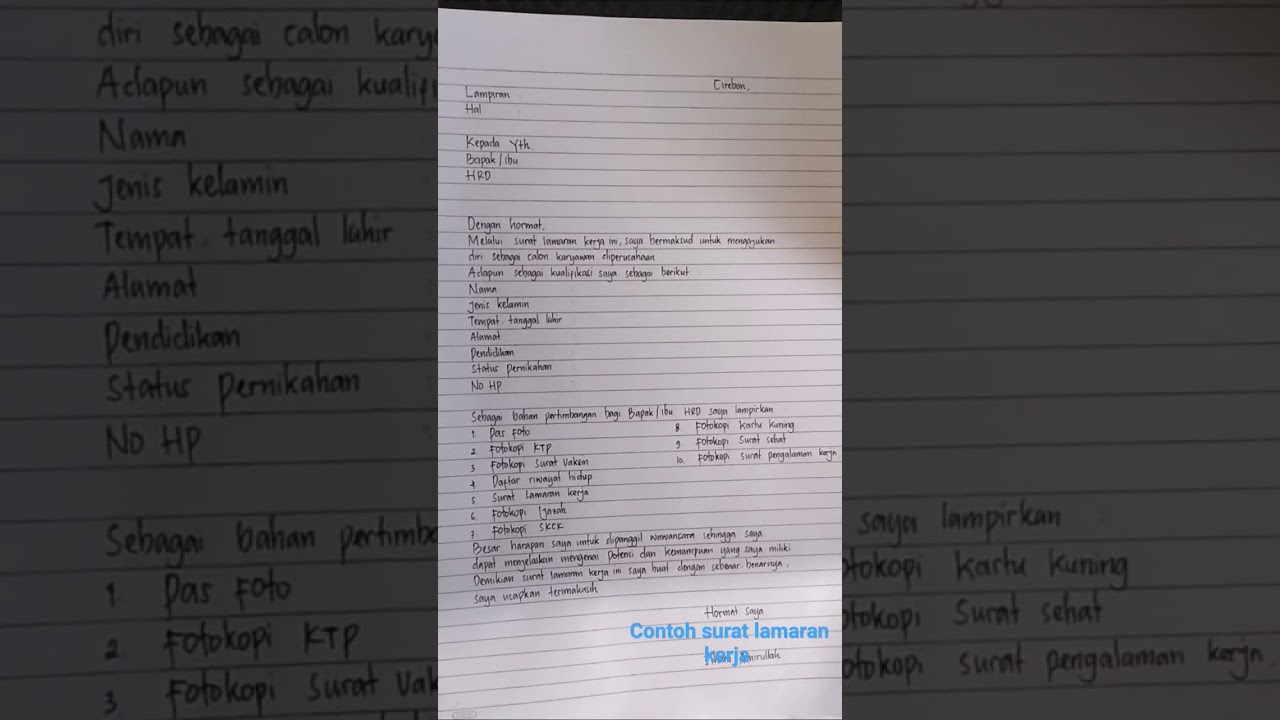 Cirebon,
Lampiran :
Hal :
Kepada Yth.
Bapak/ibu
HRD
Dengan hormat,
Melalui surat lamaran kerja ini, saya bermaksud untuk mengajukan
diri sebagai calon karyawan diperusahaan
Adapun sebagai kualifikasi saya sebagai berikut
Nama :
Jenis kelamin :
Tempat. tanggal lahir :
Alamat :
Pendidikan :
Status pernikahan :
No HP :
Sebagai bahan pertimbangan bagi Bapak/ibu HRD saya lampirkan :
1. Pas Foto
2. Fotokopi KTP
3. Fotokopi Surat Vaksin
4. Daftar riwayat hidup
5. Surat Lamaran kerja
6. Fotokopi Ijazah
7. Fotokopi SKCK
8. Fotokopi Kartu Kuning
9. Fotokopi Surat sehat
10. Fotokopi surat pengalaman kerja
Besar harapan saya untuk dipanggil wawancara sehingga saya
dapat menjelaskan mengenai Potensi dan Kemampuan yang saya miliki
Demikian surat lamaran kerja ini saya buat dengan sebenar benarnya,
saya ucapkan terimakasih
Hormat saya
Contoh surat lamaran
kerja
diri sebagai calon karya
Adapun sebagai kualifi
Nama
Jenis kelamin
Tempat. tanggal lahir
Alamat
Pendidikan
Status pernikahan
No HP
Sebagai bahan pertimb
1 Pas Foto
2 Fotokopi KTP
3 Fotokopi Surat Vak
saya lampirkan :
otokopi Kartu Kuning
otokopi Surat sehat
otokopi surat pengalaman kerja